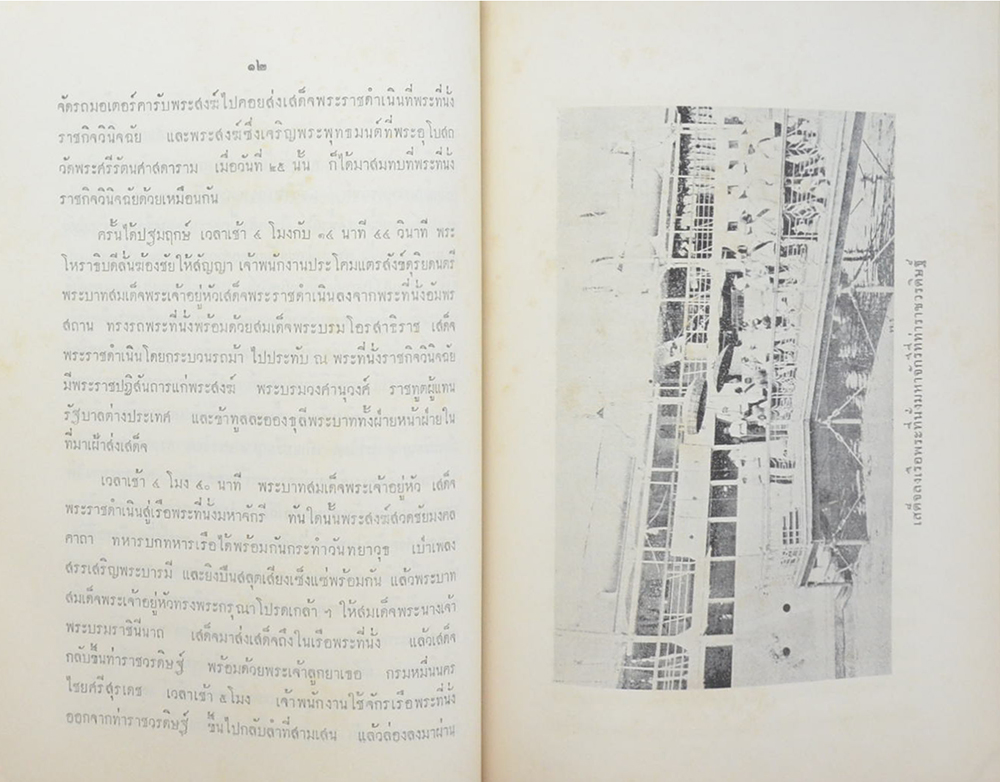 ๑๒
จัดรถมอเตอร์คารับพระสงฆ์ไปคอยส่งเสด็จพระราชดำเนินที่พระที่นั่ง
ราชกิจวินิจฉัย และพระสงฆ์ซึ่งเจริญพระพุทธมนต์ที่พระอุโบสถ
วัดพระศรีรัตนศาสดาราม เมื่อวันที่ ๒๕ นั้น ก็ได้มาสมทบที่พระที่นั่ง
ราชกิจวินิจฉัยด้วยเหมือนกัน
ครั้นได้ปฐมฤกษ์ เวลาเช้า ๔ โมงกับ ๑๔ นาที ๔๔ วินาที พระ
โหราธิบดีลั่นฆ้องชัยให้สัญญา เจ้าพนักงานประโคมแตรสังข์ดุริยดนตรี
พระบาทสมเด็จพระเจ้าอยู่หัวเสด็จพระราชดำเนินลงจากพระที่นั่งอัมพร
สถาน ทรงรถพระที่นั่งพร้อมด้วยสมเด็จพระบรมโอรสาธิราช เสด็จ
พระราชดำเนินโดยกระบวนรถม้า ไปประทับ ณ พระที่นั่งราชกิจวินิจฉัย
มีพระราชปฏิสันถารแก่พระสงฆ์ พระบรมวงศานุวงศ์ ราชทูตผู้แทน
รัฐบาลต่างประเทศ และข้าทูลละอองธุลีพระบาททั้งฝ่ายหน้าฝ่ายใน
ที่มาเฝ้าส่งเสด็จ
เวลาเช้า ๔ โมง ๕๐ นาที พระบาทสมเด็จพระเจ้าอยู่หัว เสด็จ
พระราชดำเนินสู่เรือพระที่นั่งมหาจักรี ทันใดนั้นพระสงฆ์สวดชัยมงคล
คาถา ทหารบกทหารเรือได้พร้อมกันกระทำวันทยาวุธ เป่าเพลง
สรรเสริญพระบารมี และยิงปืนสลุตเสียงเซ็งแซ่พร้อมกัน แล้วพระบาท
สมเด็จพระเจ้าอยู่หัวทรงพระกรุณาโปรดเกล้า ฯ ให้สมเด็จพระนางเจ้า
พระบรมราชินีนาถ เสด็จมาส่งเสด็จถึงในเรือพระที่นั่ง แล้วเสด็จ
กลับขึ้นท่าราชวรดิษฐ์ พร้อมด้วยพระเจ้าลูกยาเธอ กรมหมื่นนคร
ไชยศรีสุรเดช เวลาเช้า ๕ โมง เจ้าพนักงานใช้จักรเรือพระที่นั่ง
ออกจากท่าราชวรดิษฐ์ ขึ้นไปกลับลำที่สามเสน แล้วล่องลงมาผ่าน
เสด็จลงเรือพระที่นั่งมหาจักรีที่ท่าราชวรดิษฐ์